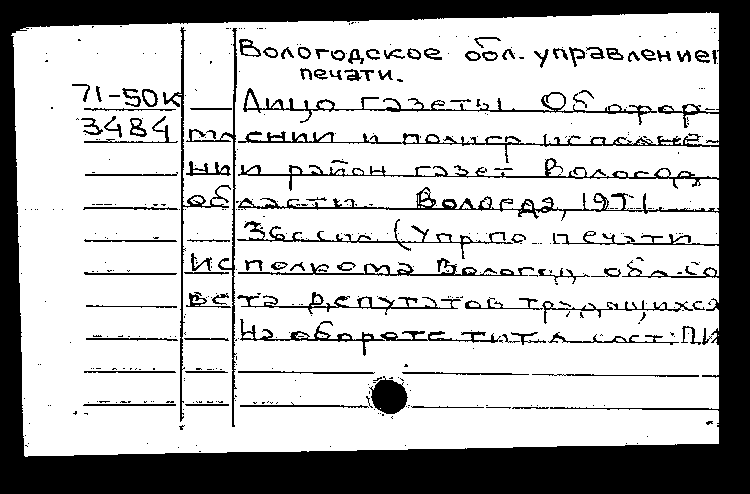 Вологодское обл. управление
печати.
71-50к Лицо газеты. Об офор-
3484 млении и полигр исполне-
нии район газет Вологод.
области. Вологда, 1971.
36с сил (Упр по печати
Исполкома Вологод. обл. со
вета депутатов трудящихся
На обороте тит. л сост: ПИ